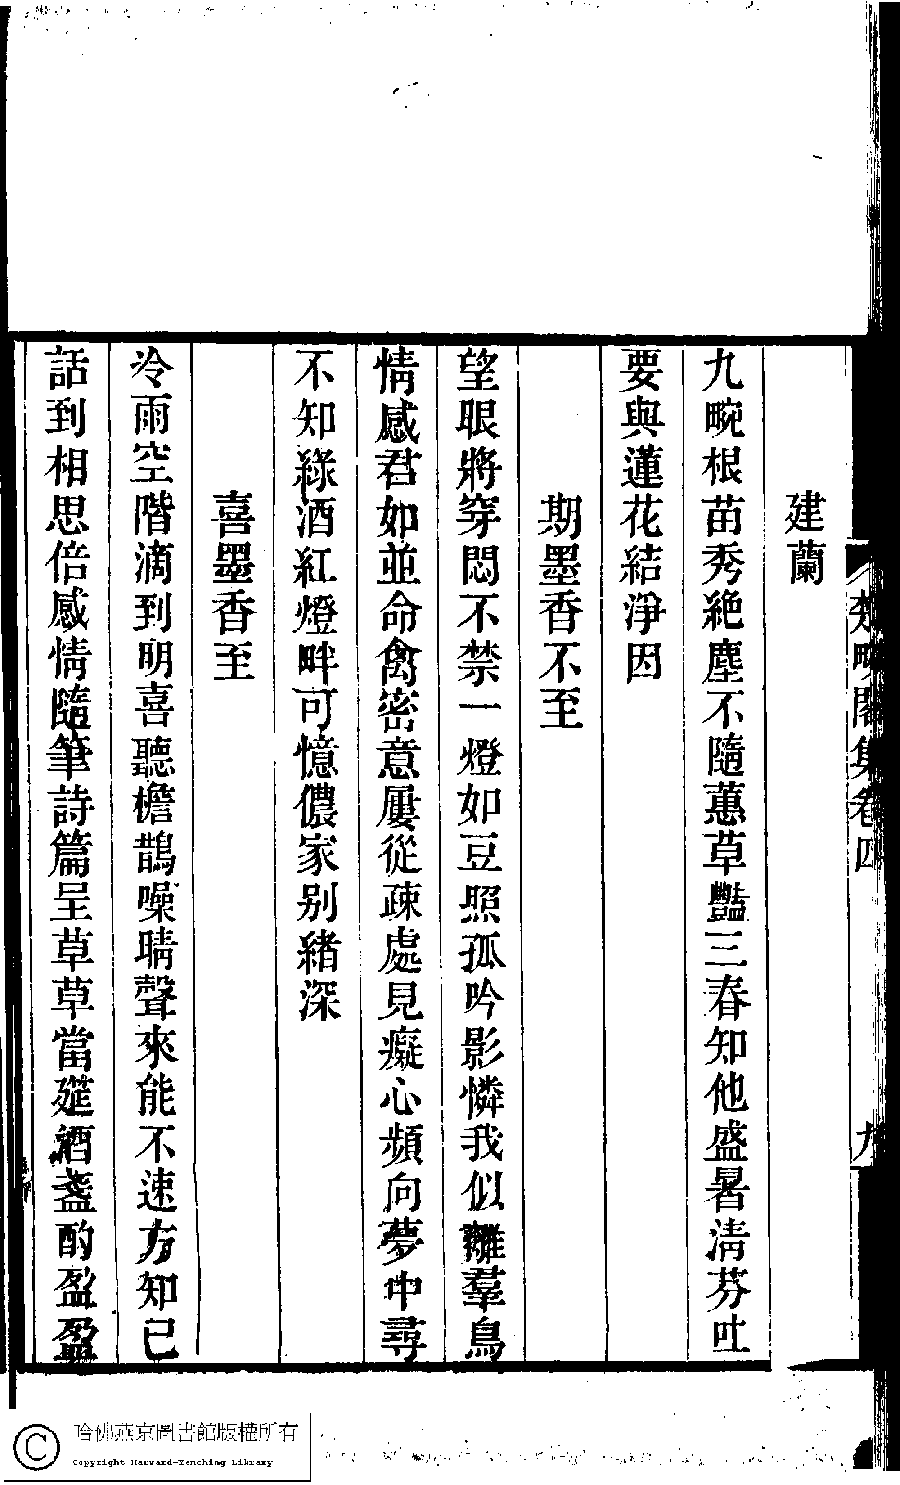 建蘭
九畹根苗秀絶塵不隨蕙草豔三春知他盛暑淸芬吐
要與蓮花結淨因
期墨香不至
望眼將穿悶不禁一燈如豆照孤吟影憐我似離羣鳥
情感君如並命禽密意屢從疎處見癡心頻向夢中尋
不知綠酒紅燈畔可憶儂家别緒深
喜墨香至
冷雨空階滴到明喜聽檐鵲噪晴聲來能不速方知已
話到相思倍感情隨筆詩篇呈草草當筵酒盞酌盈盈
閣集卷四
九
哈佛燕京圖書館版權所有
Copyright Harvard-Yenching Library